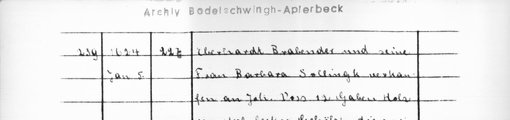 Archiv Bodelschwingh-Aplerbeck
239 1624 227 Eberhardt Brabender und seine
Jan 5 Frau Barbara Sollingk verkau
fen an Joh. Voss 12 Gaben Holz